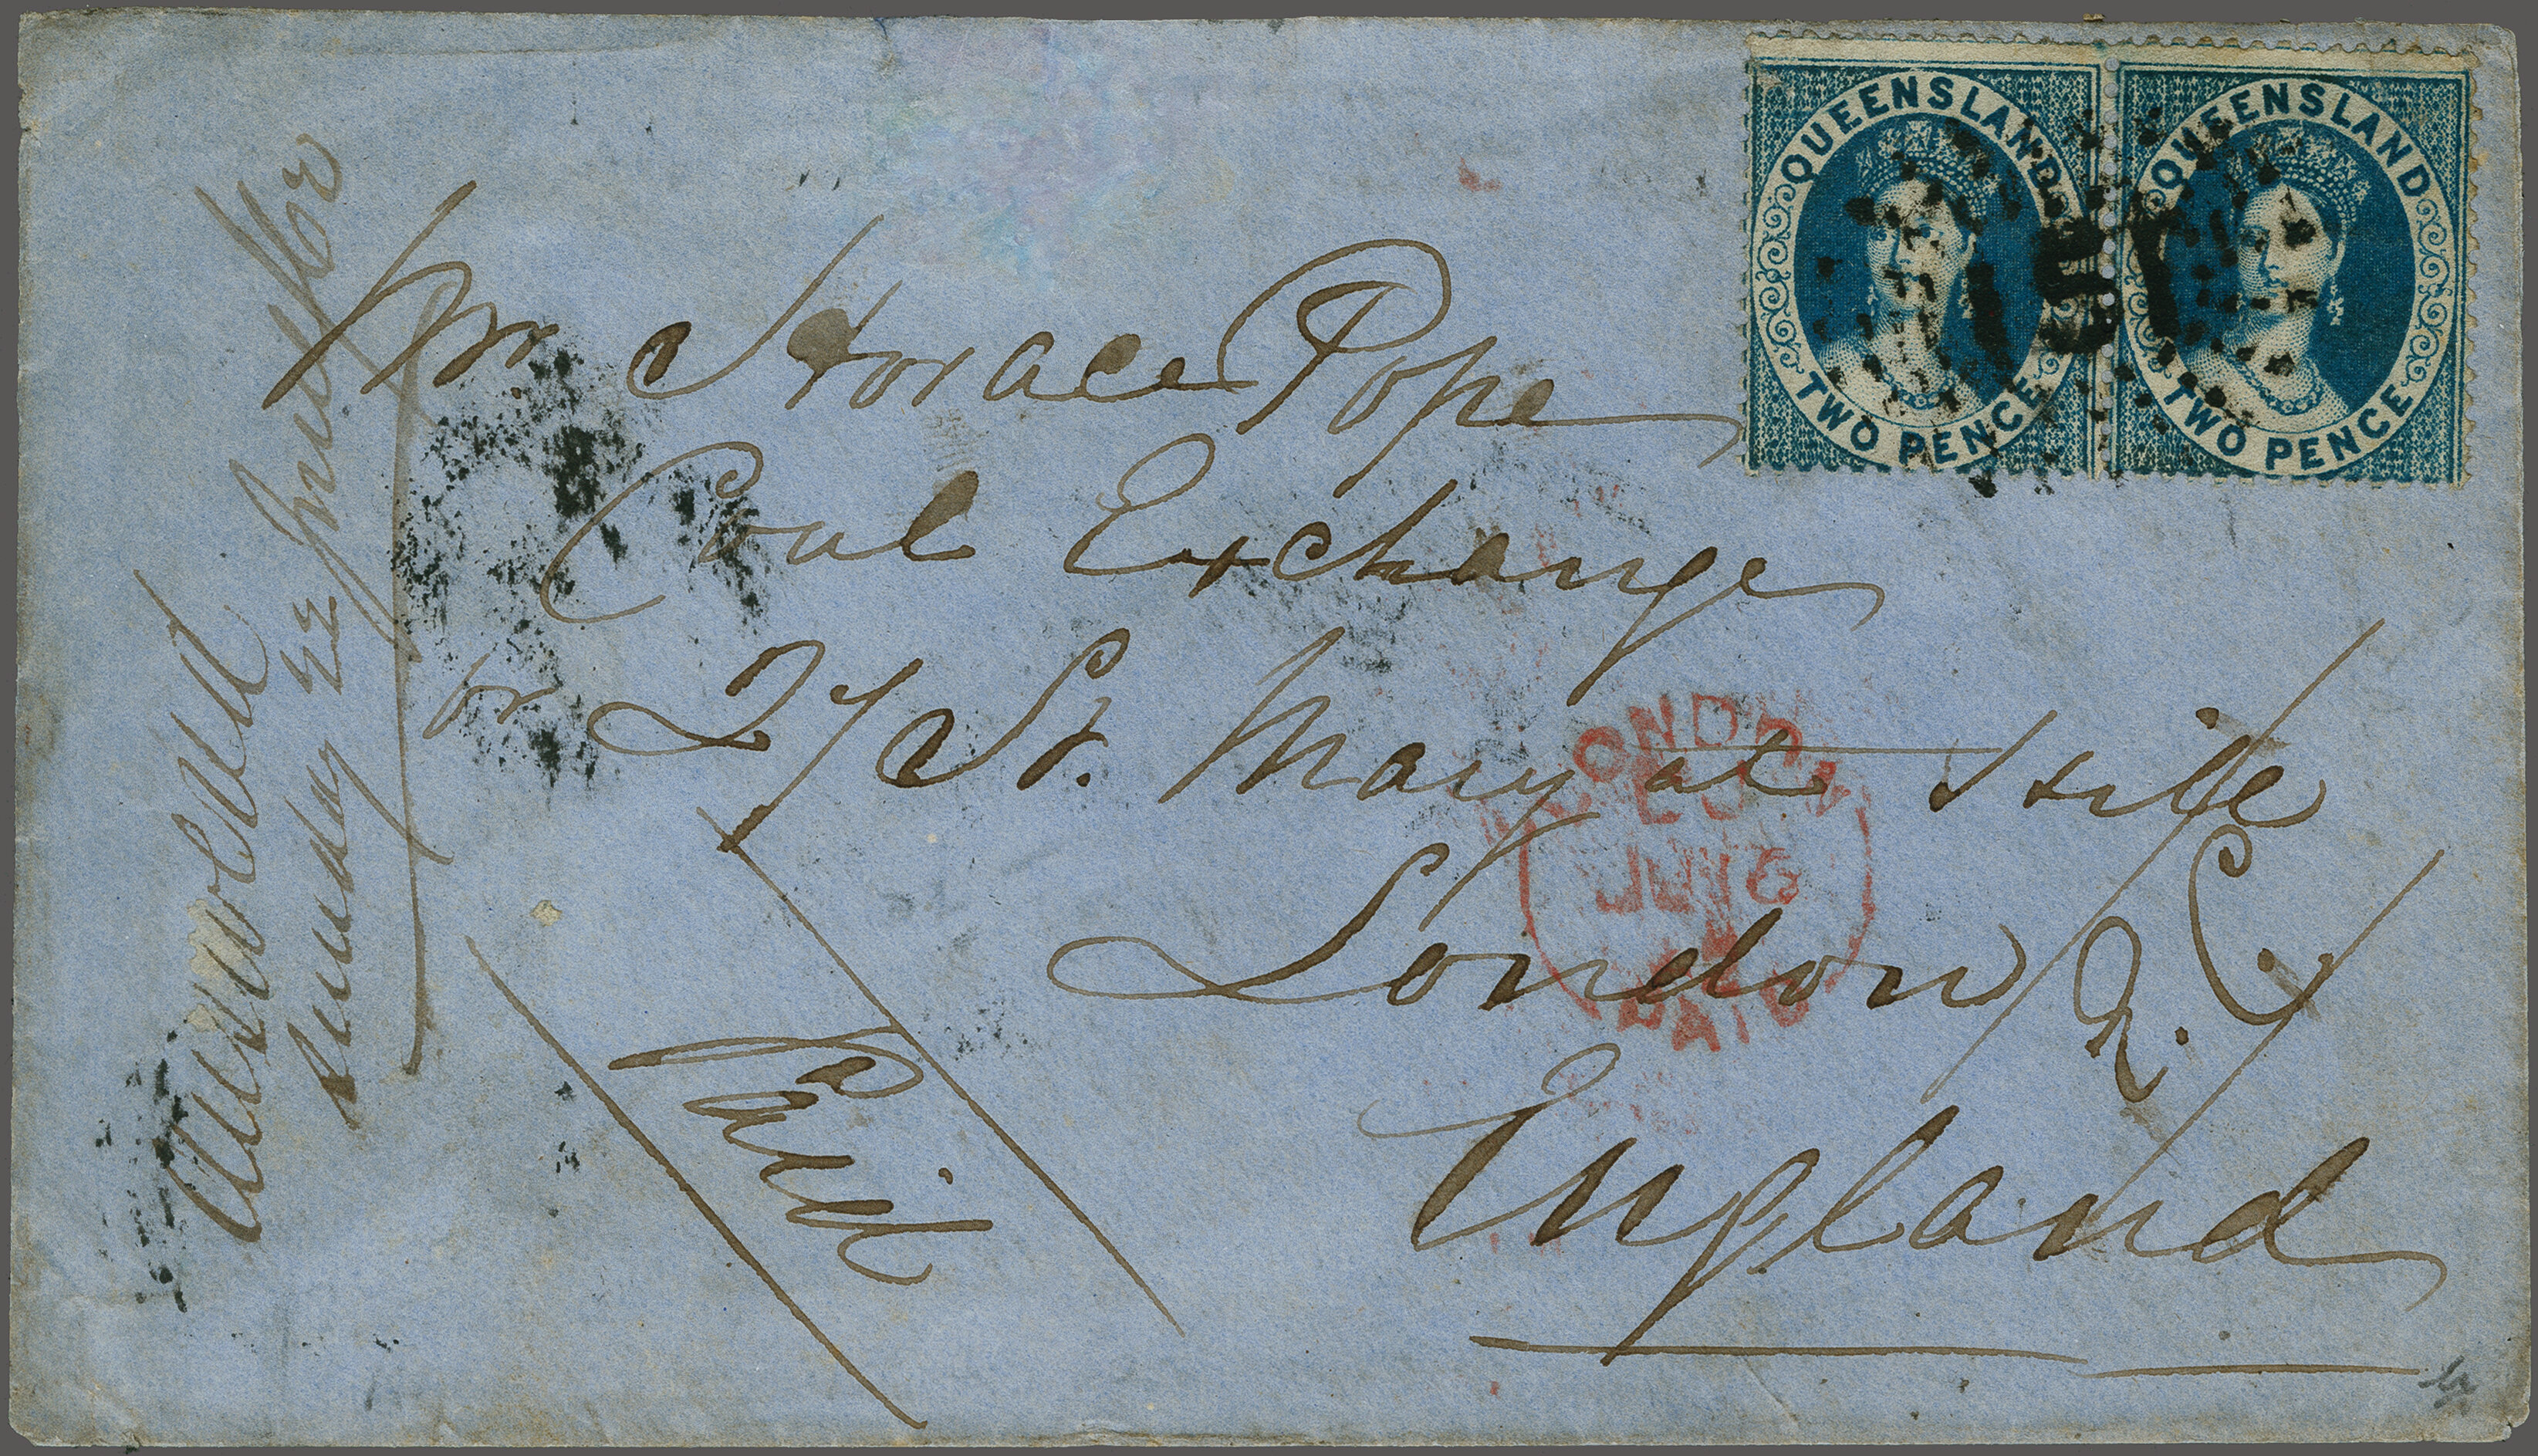 QUEENSLAND
TWO PENCE
QUEENSLAND
TWO PENCE
Mr. Horace Pope
Coal Exchange
or 27 St. Mary at Hill
London E.C.
England
Paid
Answered
Sunday 22
LONDON
JU 16
PAID